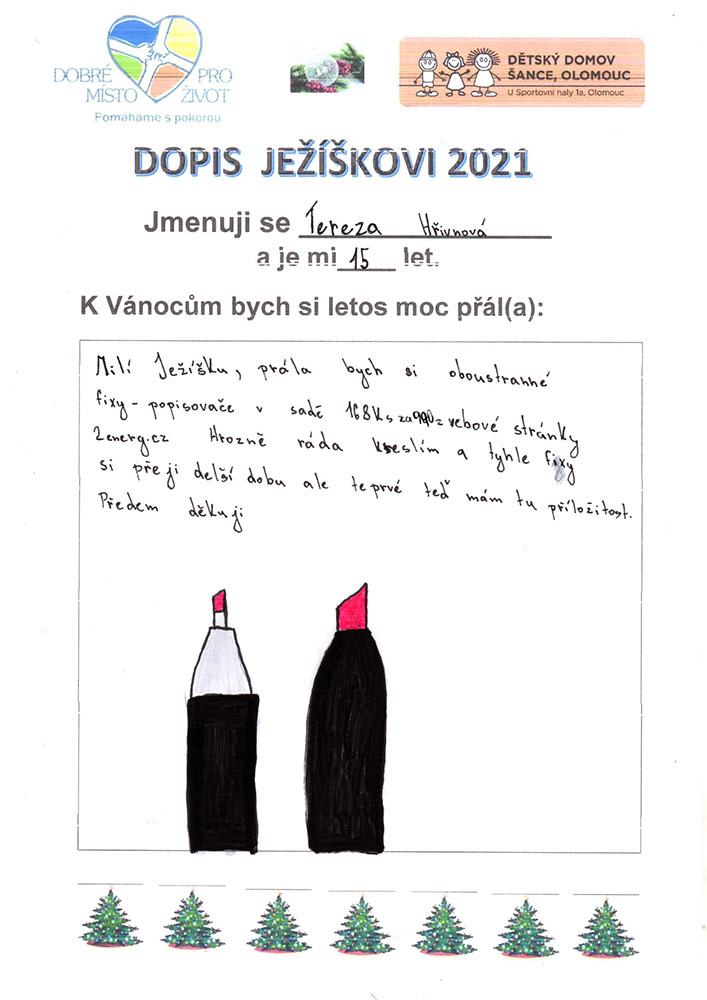 DOBRÉ PRO
MÍSTO ŽIVOT
Pomáháme s pokorou
DĚTSKÝ DOMOV
ŠANCE, OLOMOUC
U Sportovní haly 1a, Olomouc
DOPIS JEŽÍŠKOVI 2021
Jmenuji se Tereza Hřivnová
a je mi 15 let.
K Vánocům bych si letos moc přál(a):
Milí Ježíšku, prála bych si oboustranné
fixy-popisovače v sadě 168Ks za 990z vebové stránky
2energ.cz Hrozně ráda kreslím a tyhle fixy
si přeji delší dobu ale teprvé teď mám tu příložitost.
Předem děkuji